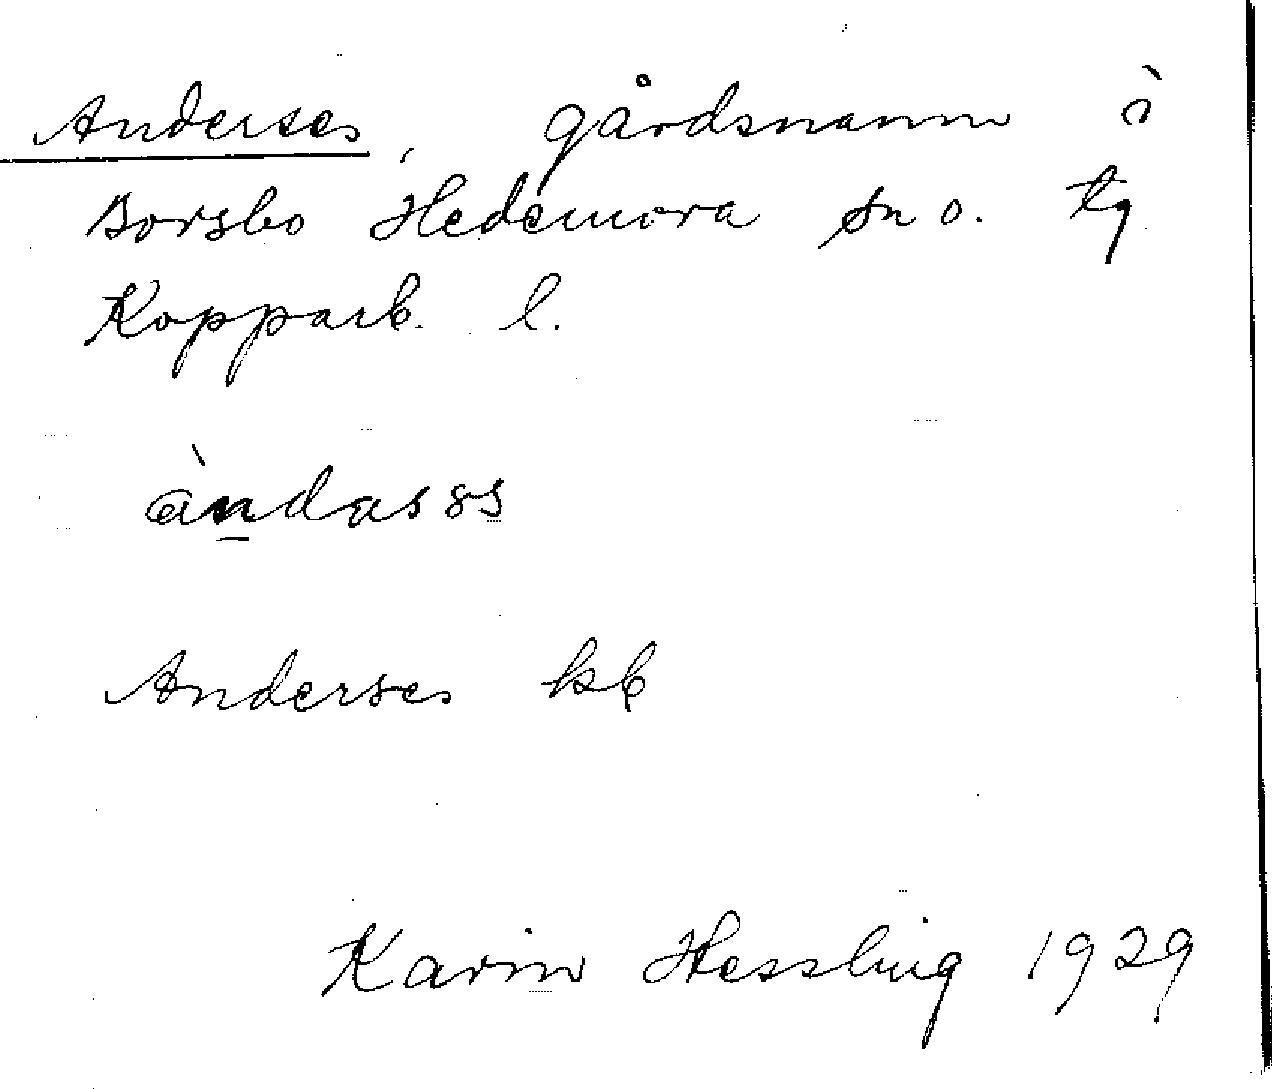 Anderses, gårdsnamn i
Borsbo Hedemora sn o. tg
Kopparb. l.
àndas
Anderses kb
Karin Hessling 1929